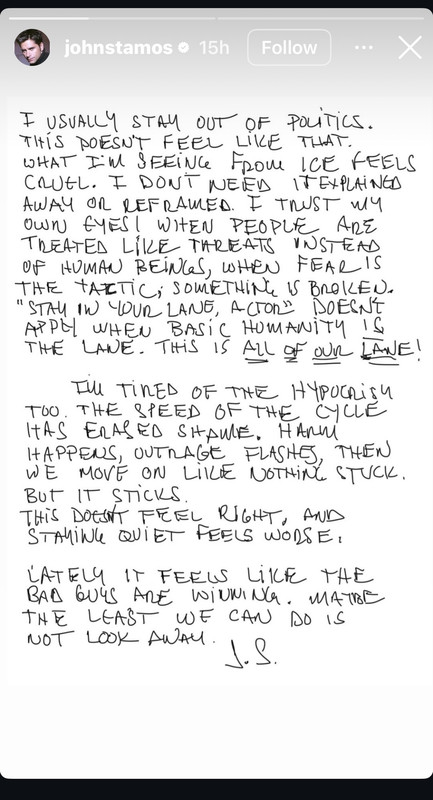 johnstamos 15h Follow
I USUALLY STAY OUT OF POLITICS.
THIS DOESN'T FEEL LIKE THAT.
WHAT I'M SEEING FROM ICE FEELS
CRUEL. I DON'T NEED IT EXPLAINED
AWAY OR REFRAMED. I TRUST MY
OWN EYES! WHEN PEOPLE ARE
TREATED LIKE THREATS INSTEAD
OF HUMAN BEINGS, WHEN FEAR IS
THE TACTIC, SOMETHING IS BROKEN.
"STAY IN YOUR LANE, ACTOR" DOESN'T
APPLY WHEN BASIC HUMANITY IS
THE LANE. THIS IS ALL OF OUR LANE!
I'M TIRED OF THE HYPOCRISY
TOO. THE SPEED OF THE CYCLE
HAS ERASED SHAME. HARM
HAPPENS, OUTRAGE FLASHES, THEN
WE MOVE ON LIKE NOTHING STUCK.
BUT IT STICKS.
THIS DOESN'T FEEL RIGHT, AND
STAYING QUIET FEELS WORSE.
LATELY IT FEELS LIKE THE
BAD GUYS ARE WINNING. MAYBE
THE LEAST WE CAN DO IS
NOT LOOK AWAY.
J.S.